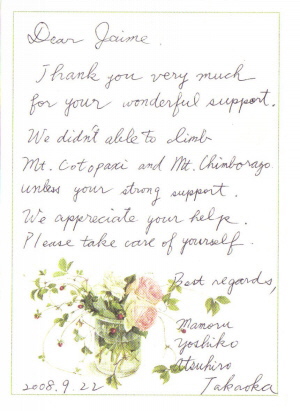 Dear Jaime.
Thank you very much
for your wonderful support.
We didn't able to climb
Mt. Cotopaxi and Mt. Chimborazo
unless your strong support.
We appreciate your help.
Please take care of yourself.
Best regards,
Mamoru
Yoshiko
Itsuhiro
Takaoka
2008.9.22